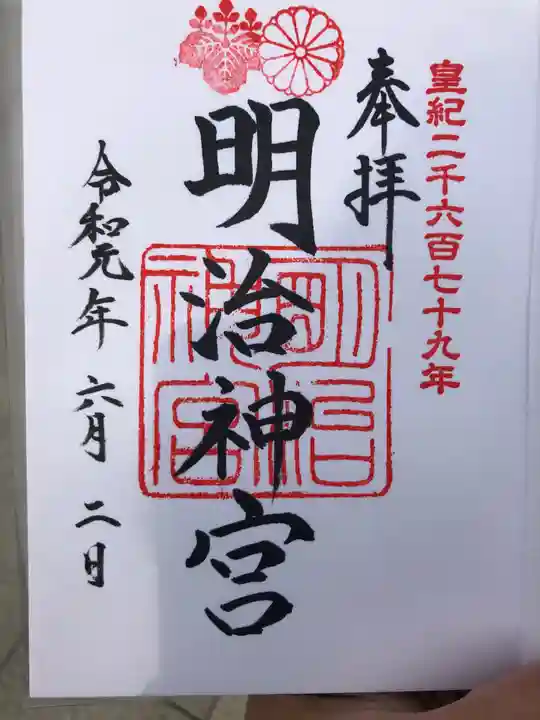 皇紀二千六百七十九年
奉拝
明治神宮
明治神宮
令和元年 六月 二日